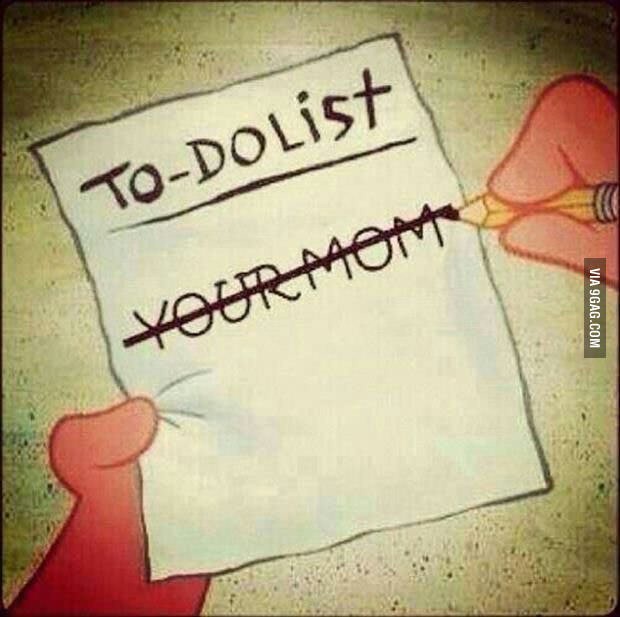 TO-DO List
YOUR MOM
VIA 9GAG.COM